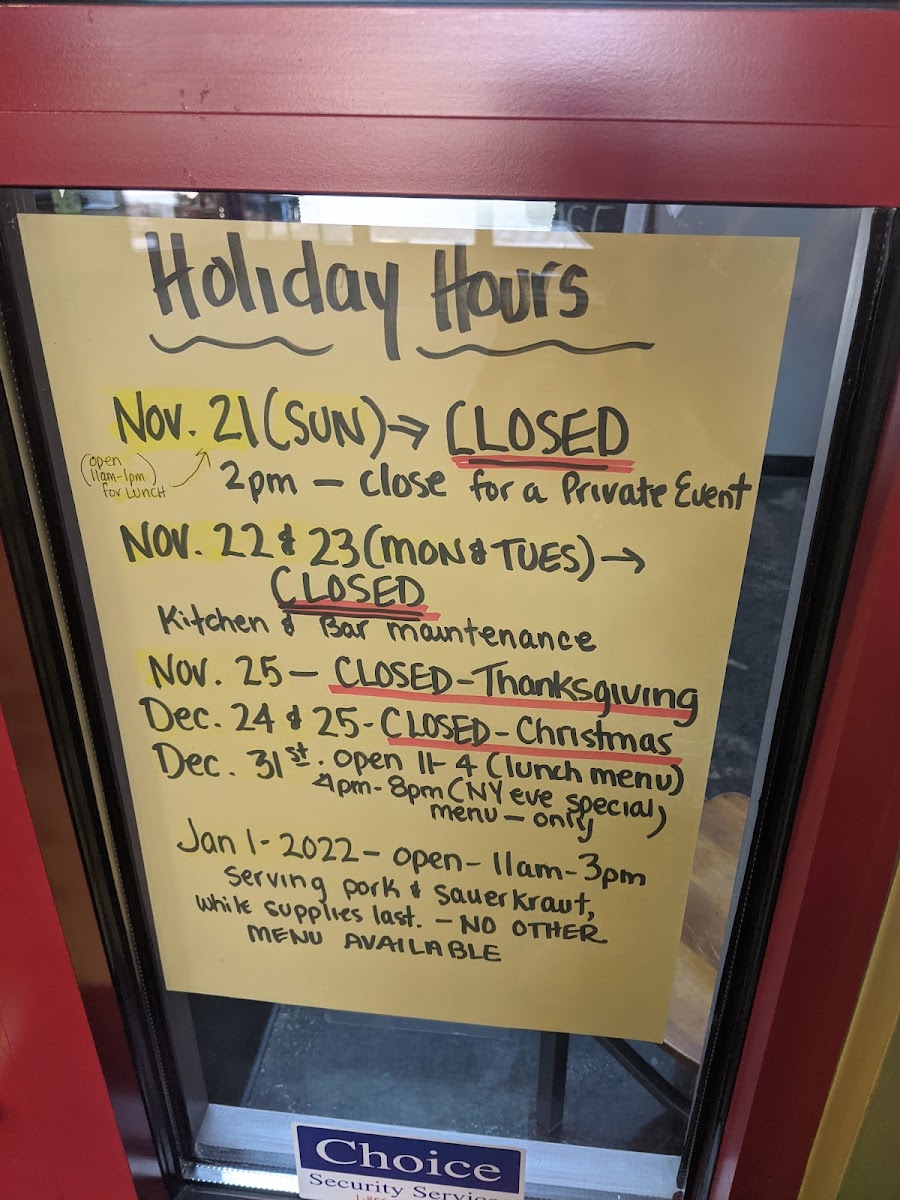 Holiday Hours
Nov. 21 (SUN) → CLOSED
(open
11am-1pm)
for LUNCH
2pm — close for a Private Event
Nov. 22 & 23 (MON & TUES) →
CLOSED
Kitchen & Bar maintenance
Nov. 25 — CLOSED - Thanksgiving
Dec. 24 & 25 - CLOSED - Christmas
Dec. 31st. open 11-4 (lunch menu)
4pm - 8pm (NY eve special)
menu — only
Jan 1 - 2022 — open - 11am-3pm
serving pork & sauerkraut,
while supplies last. — NO OTHER
MENU AVAILABLE
Choice
Security Service